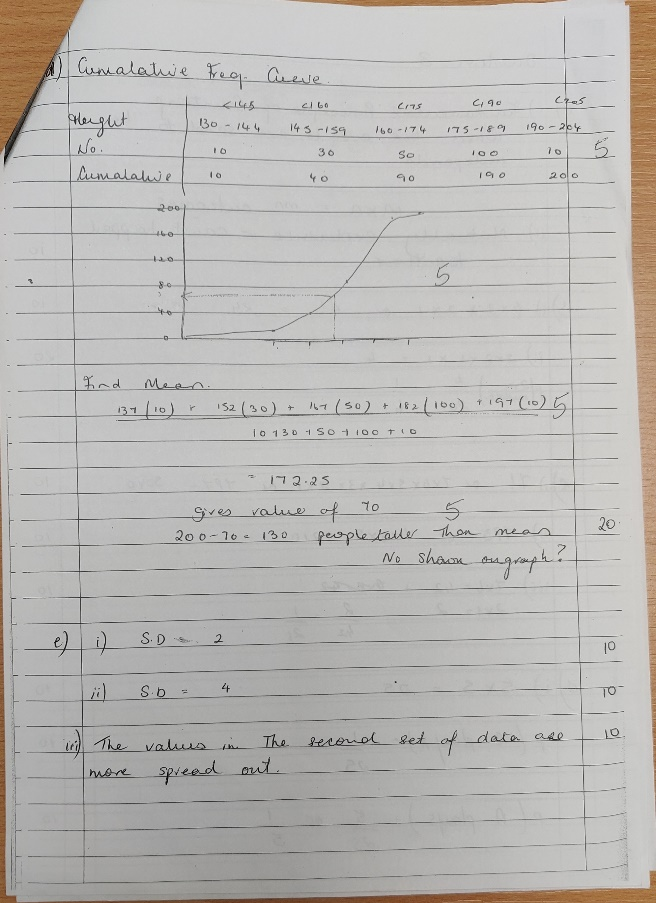 d) Cumalative Freq. Curve.
<145 <160 <175 <190 <205
Height 130-144 145-159 160-174 175-189 190-204
No. 10 30 50 100 10 5
Cumalative 10 40 90 190 200
200
160
120
80 5
40
0
Find Mean.
137(10) + 152(30) + 167(50) + 182(100) + 197(10) 5
10+30+50+100+10
= 172.25
gives value of 70 5
200-70 = 130 people taller than mean 20
No shown on graph?
e) i) S.D = 2 10
ii) S.D = 4 10
iii) The values in The second set of data are 10
more spread out.